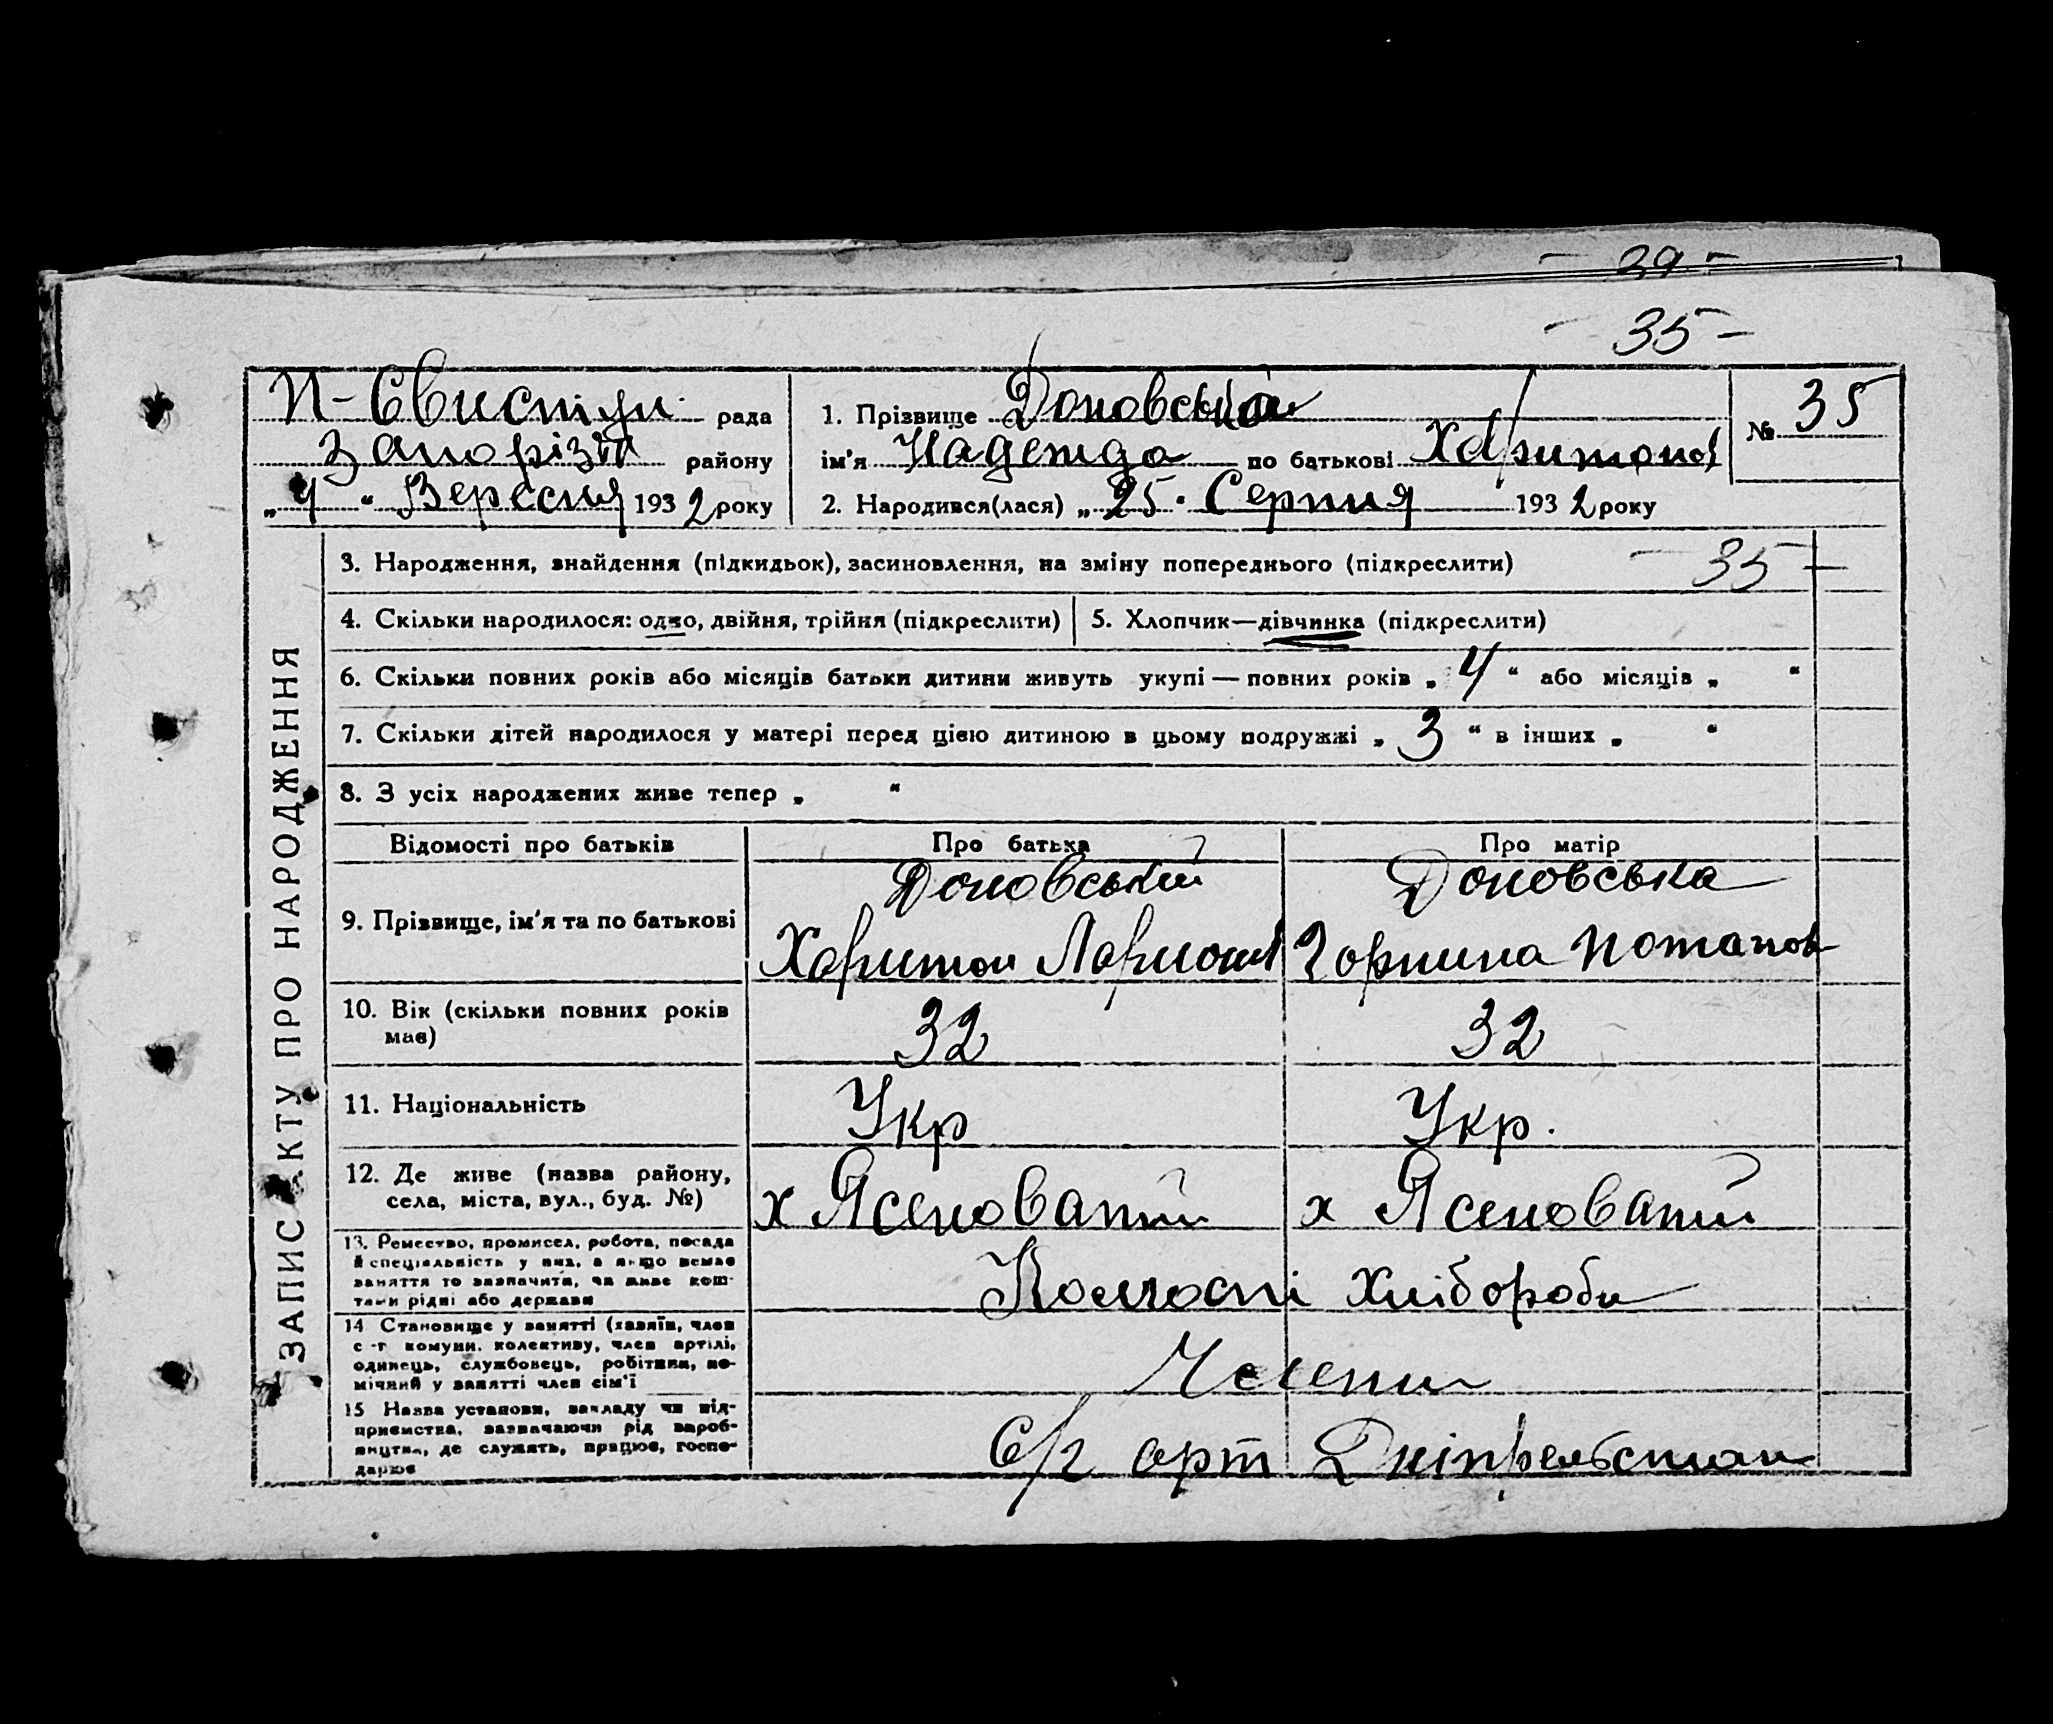 - 39 -
- 35 -
П-Свистун. рада
Запорізьк району
„ 4 “ Вересня 1932 року
1. Прізвище Доновська
ім'я Надежда по батькові Харитонов
2. Народився(лася) „ 25 “ Серпня 1932 року
№ 35
ЗАПИС АКТУ ПРО НАРОДЖЕННЯ
3. Народження, знайдення (підкидьок), засиновлення, на зміну попереднього (підкреслити) - 35 -
4. Скільки народилося: одно, двійня, трійня (підкреслити)
5. Хлопчик—дівчинка (підкреслити)
6. Скільки повних років або місяців батьки дитини живуть укупі — повних років „ 4 “ або місяців „ “
7. Скільки дітей народилося у матері перед цією дитиною в цьому подружжі „ 3 “ в інших „ “
8. З усіх народжених живе тепер „ “
Відомості про батьків Про батька Про матір
9. Прізвище, ім'я та по батькові
Доновський
Харитон Ларионов
Доновська
Горпина Потапов
10. Вік (скільки повних років
має)
32 32
11. Національність Укр Укр.
12. Де живе (назва району,
села, міста, вул., буд. №)
х Ясеноватий х Ясеноватий
13. Ремество, промисел, робота, посада
й спеціяльність у них, а якщо немає
заняття то зазначити, чи живе кош-
тами рідні або держави
Колгоспі Хлібороби
14 Становище у занятті (хазяїн, член
с -г комуни, колективу, член артілі,
одинець, службовець, робітник, по-
мічний у занятті член сім'ї
Члени
15 Назва установи, закладу чи під-
приємства, зазначаючи рід вироб-
ництва, де служать, працює, госпо-
дарює
С/г арт Дніпрельстан